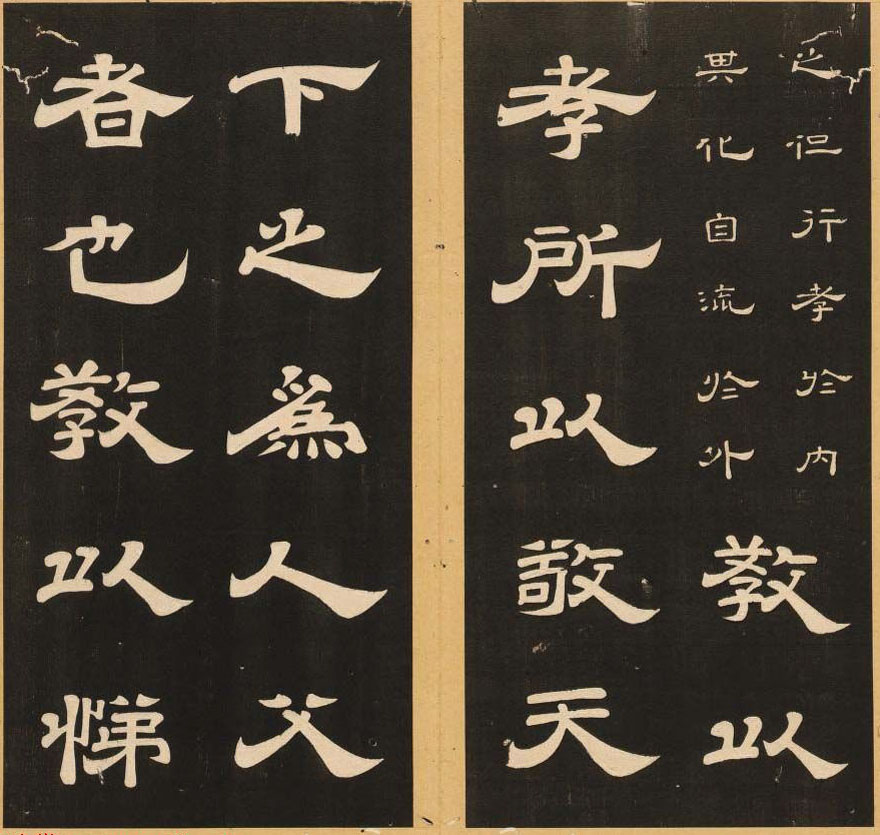 之但行孝於內
其化自流於外
教以
孝所以敬天
下之爲人父
者也教以悌